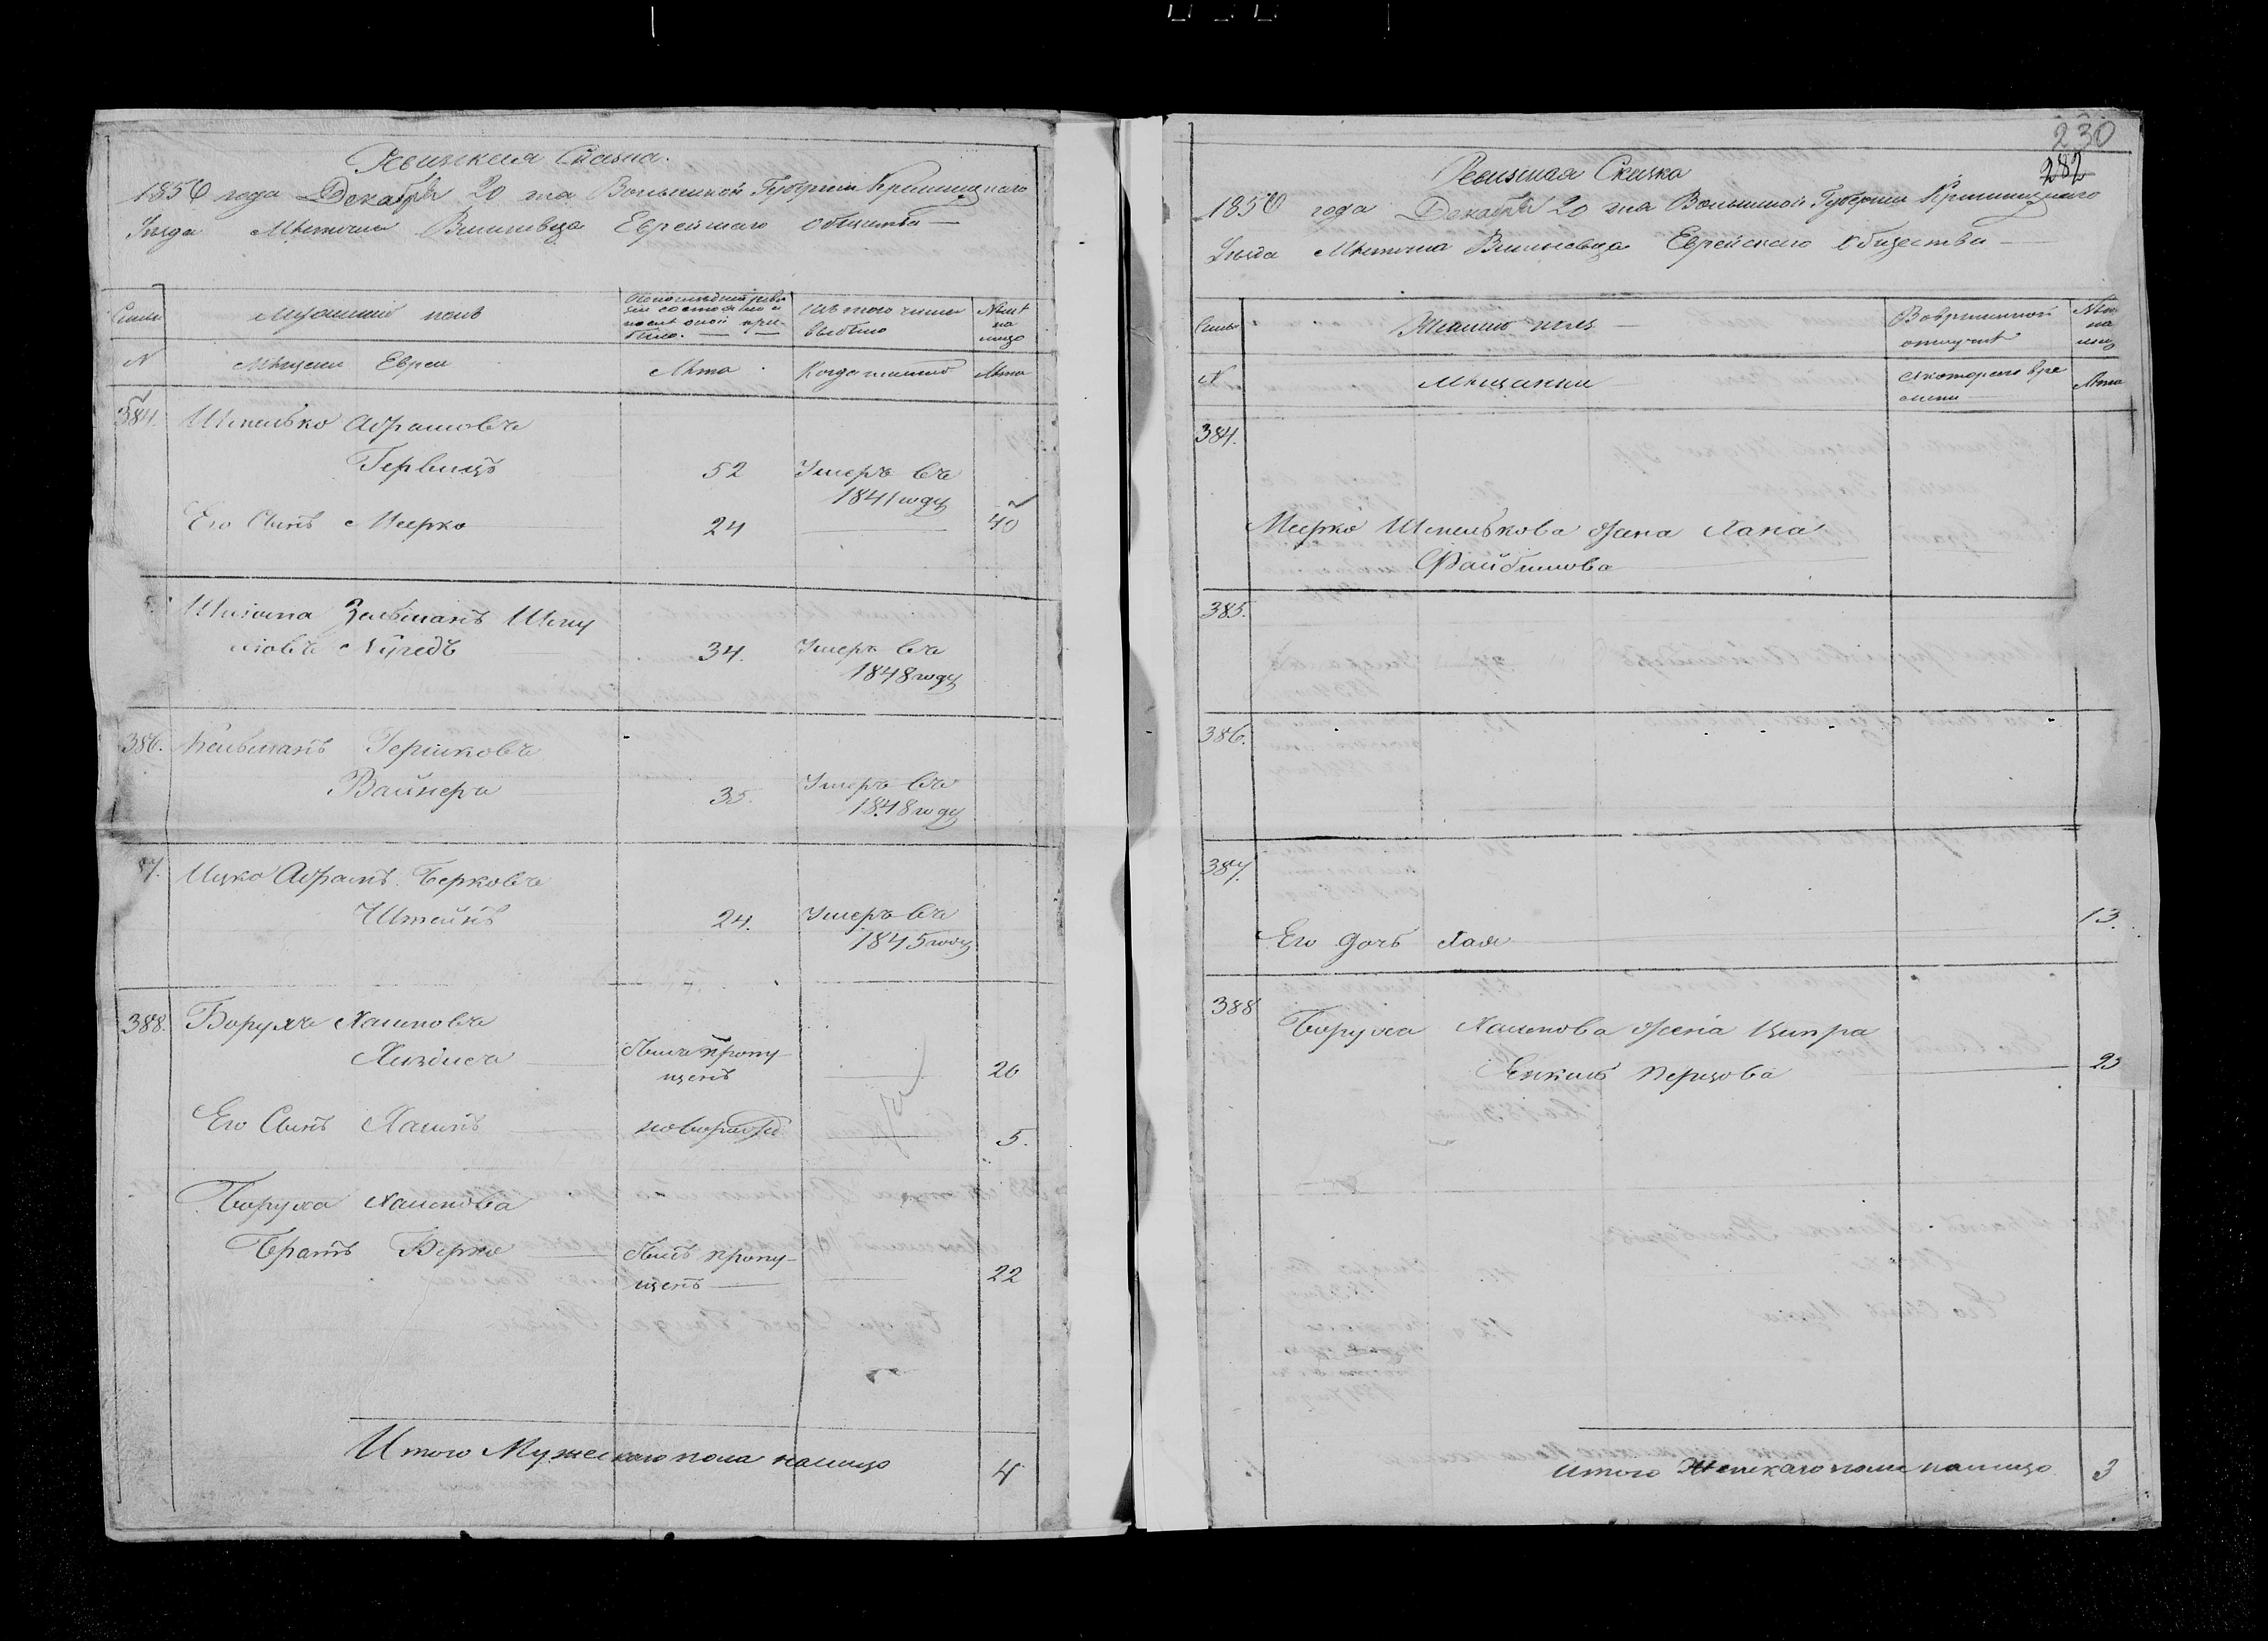 Ревизская Сказка.
1850 года Декабря 20 дня Волынской Губернии Кременецкого
Уезда Местечка Вишневца Еврейского общества
Семьи
Мужеский полъ
По последней ревизии состояло и после оной прибыло.
Изъ того числа выбыло
Ныне на лицо
№
Мещане Евреи
Лета
Когда именно
Лета
384.
Шмелько Абрамовъ
Гервицъ
52
Умеръ въ
1841 году
Его Сынъ Меерко
24
40
Зельманъ Шму
34.
Умеръ въ
1848 году
386.
Гершковъ
Вайнеръ
35.
Умеръ въ
1848 году
87.
Ицко Абрамъ Берковъ
Штейнъ
24.
Умеръ въ
1845 году
388.
Борухъ Хаимовъ
былъ пропу
щенъ
26
Его Сынъ Хаимъ
новорожд
5.
Боруха Хаимова
Братъ Берко
былъ пропу
щенъ
22
Итого Мужескаго пола налицо
4
230
282
Ревизская Сказка
1850 года Декабря 20 дня Волынской Губернии Кременецкаго
Уезда Местечка Вишневца Еврейскаго общества
Семьи
Женский полъ
Во временной
отлучке
Ныне
на
лицо
№
Мещанки
Съ котораго вре
мени
Лета
384.
Меерко Шмелькова жена Хана
Файбишова
385.
386.
387.
Его дочь Хая
13.
388
Боруха Хаимова жена Ципра
23
Итого Женскаго пола налицо
3